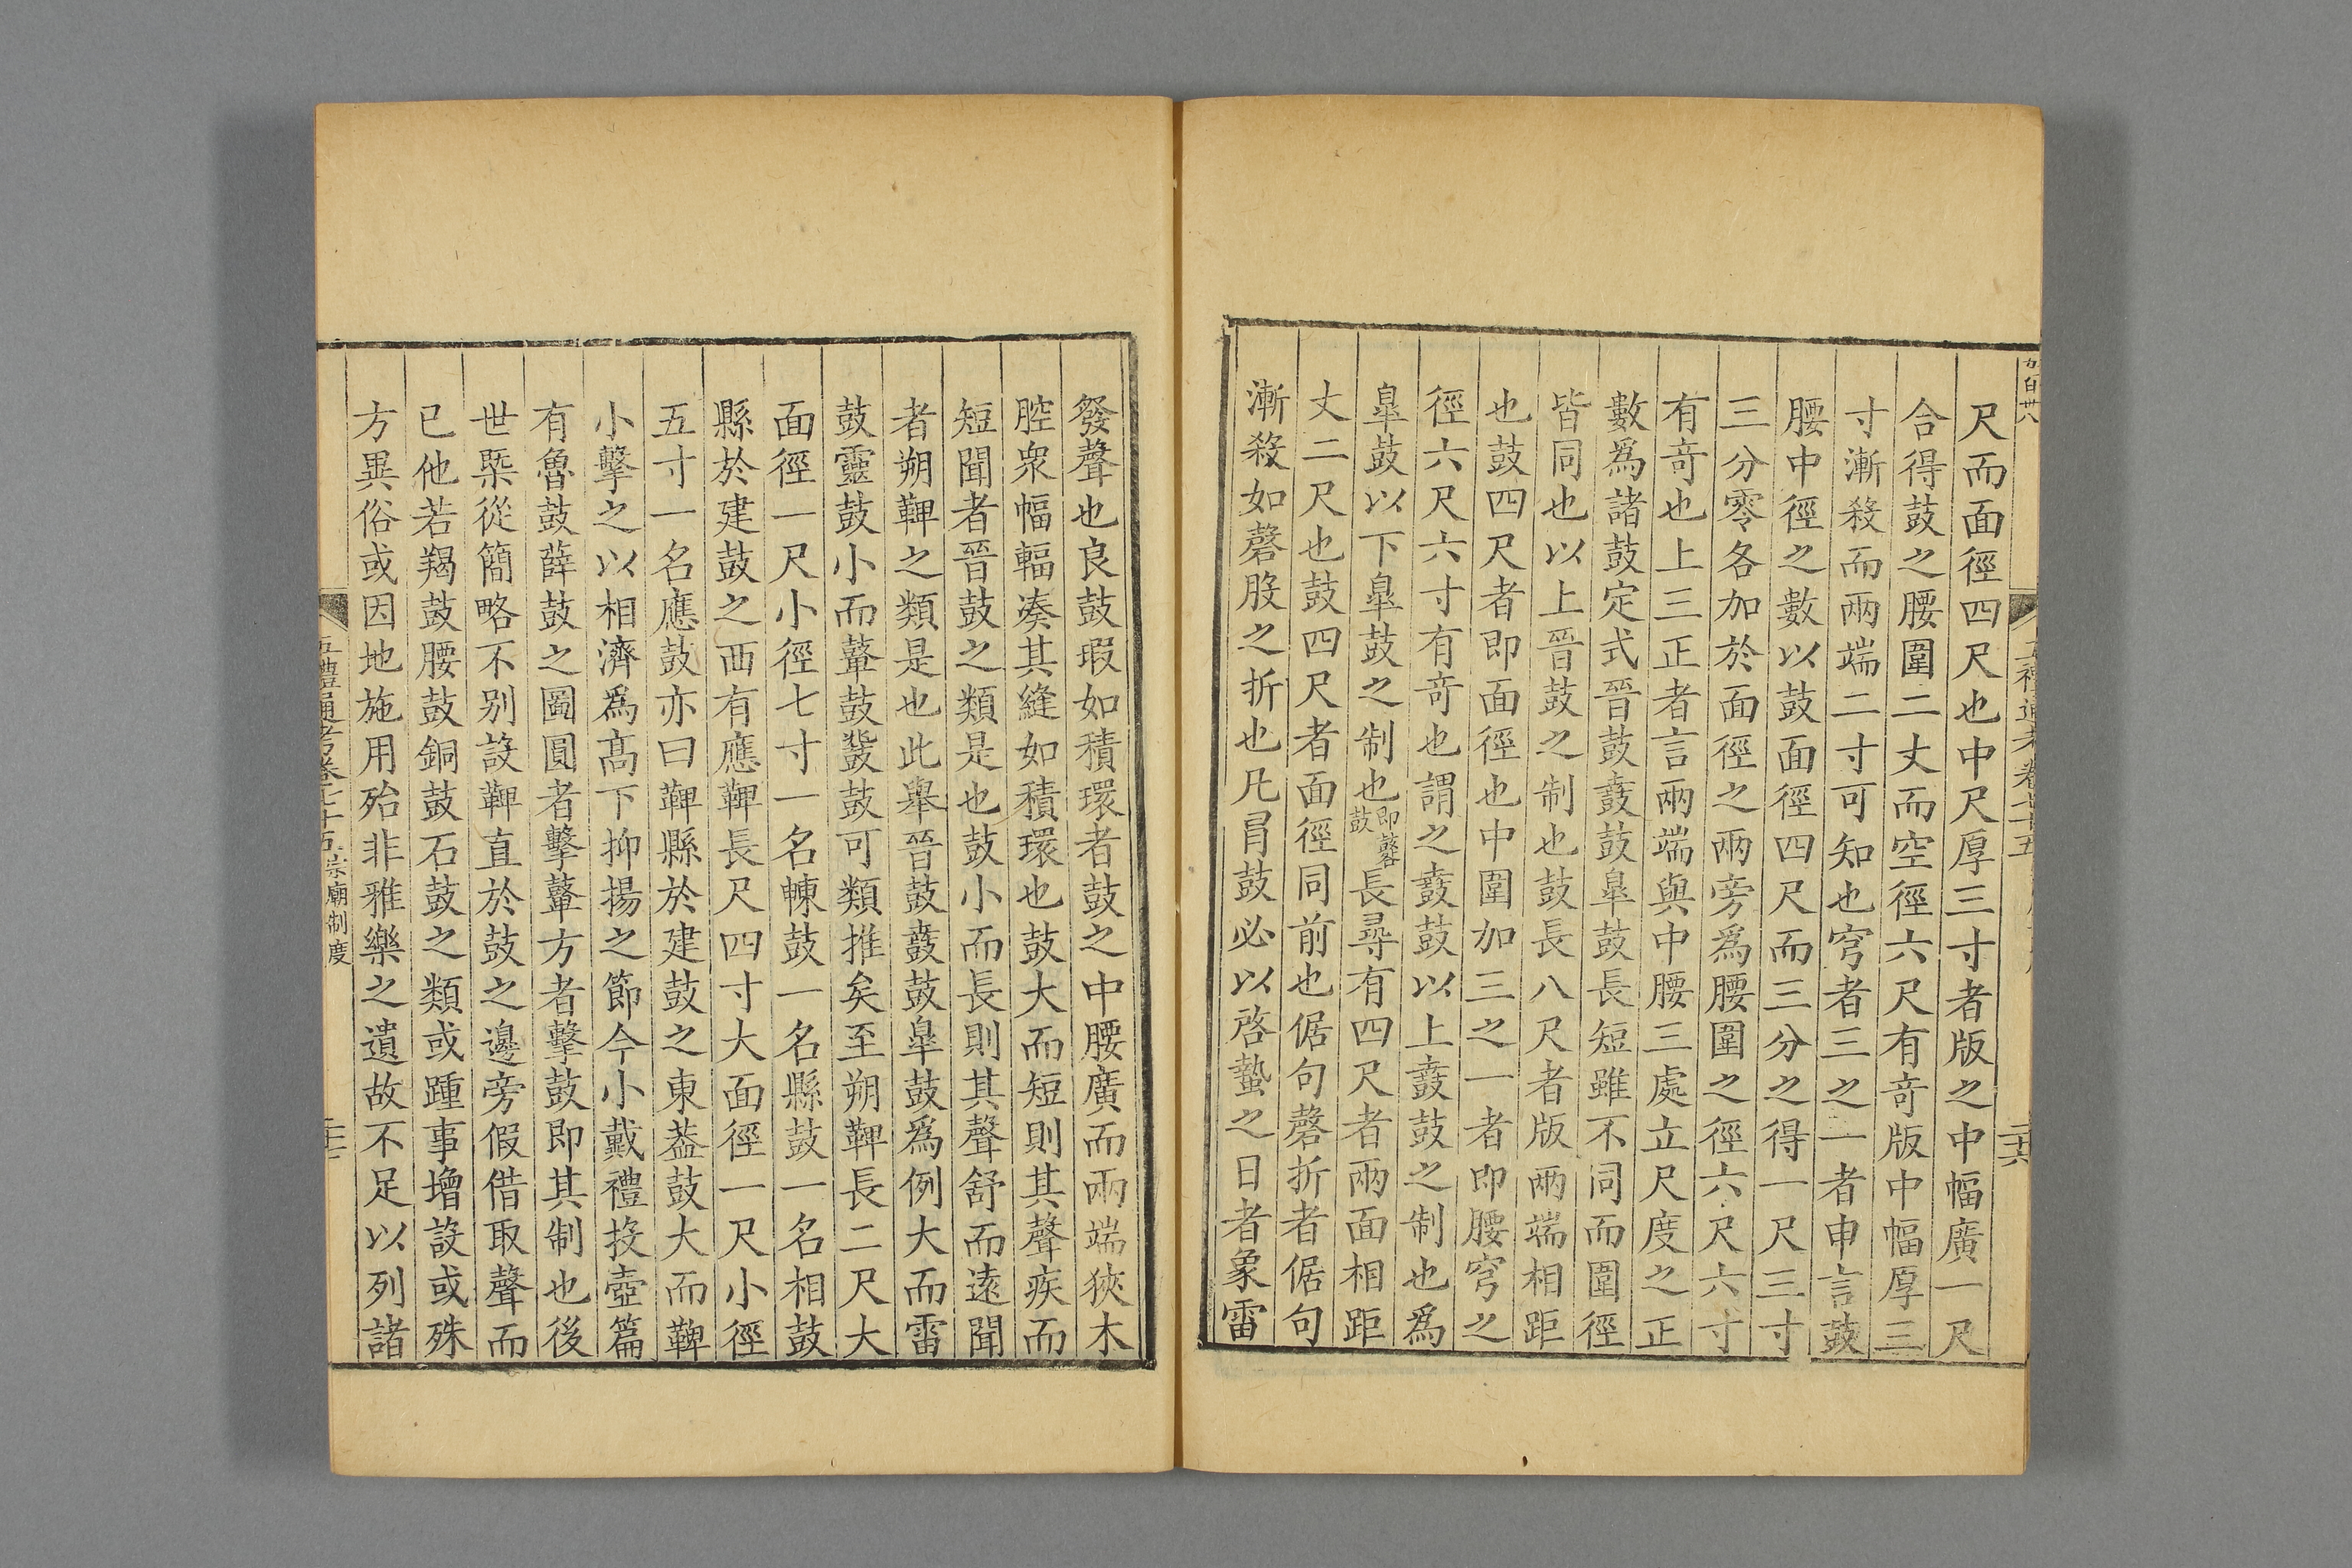 尺而面徑四尺也中尺厚三寸者版之中幅廣一尺
合得鼓之腰圍二丈而空徑六尺有竒版中幅厚三
寸漸殺而兩端二寸可知也穹者三之一者申言鼓
腰中徑之數以鼓面徑四尺而三分之得一尺三寸
三分零各加於面徑之兩旁爲腰圍之徑六尺六寸
有竒也上三正者言兩端與中腰三處立尺度之正
數爲諸鼓定式晉鼓鼖鼓臯鼓長短雖不同而圍徑
皆同也以上晉鼓之制也鼓長八尺者版兩端相距
也鼓四尺者即面徑也中圍加三之一者即腰穹之
徑六尺六寸有竒也謂之鼖鼓以上鼖鼓之制也爲
臯鼓以下臯鼓之制也即鼛鼓長尋有四尺者兩面相距
丈二尺也鼓四尺者面徑同前也倨句磬折者倨句
漸殺如磬股之折也凡冐鼓必以啓蟄之日者象雷
發聲也良鼓瑕如積環者鼓之中腰廣而兩端狹木
腔衆幅輻凑其縫如積環也鼓大而短則其聲疾而
短聞者晉鼓之類是也鼓小而長則其聲舒而遠聞
者朔鞞之類是也此舉晉鼓鼖鼓臯鼓爲例大而雷
鼓靈鼓小而鼛鼓鼗鼓可類推矣至朔鞞長二尺大
面徑一尺小徑七寸一名朄鼓一名縣鼓一名相鼓
縣於建鼓之西有應鞞長尺四寸大面徑一尺小徑
五寸一名應鼓亦曰鞞縣於建鼓之東葢鼓大而鞞
小擊之以相濟爲髙下抑揚之節今小戴禮投壺篇
有魯鼓薛鼓之圖圓者擊鼙方者擊鼓即其制也後
世槩從簡略不别設鞞直於鼓之邊旁假借取聲而
已他若羯鼓腰鼓銅鼓石鼓之類或踵事增設或殊
方異俗或因地施用殆非雅樂之遺故不足以列諸
五禮通考卷七十五 宗廟制度